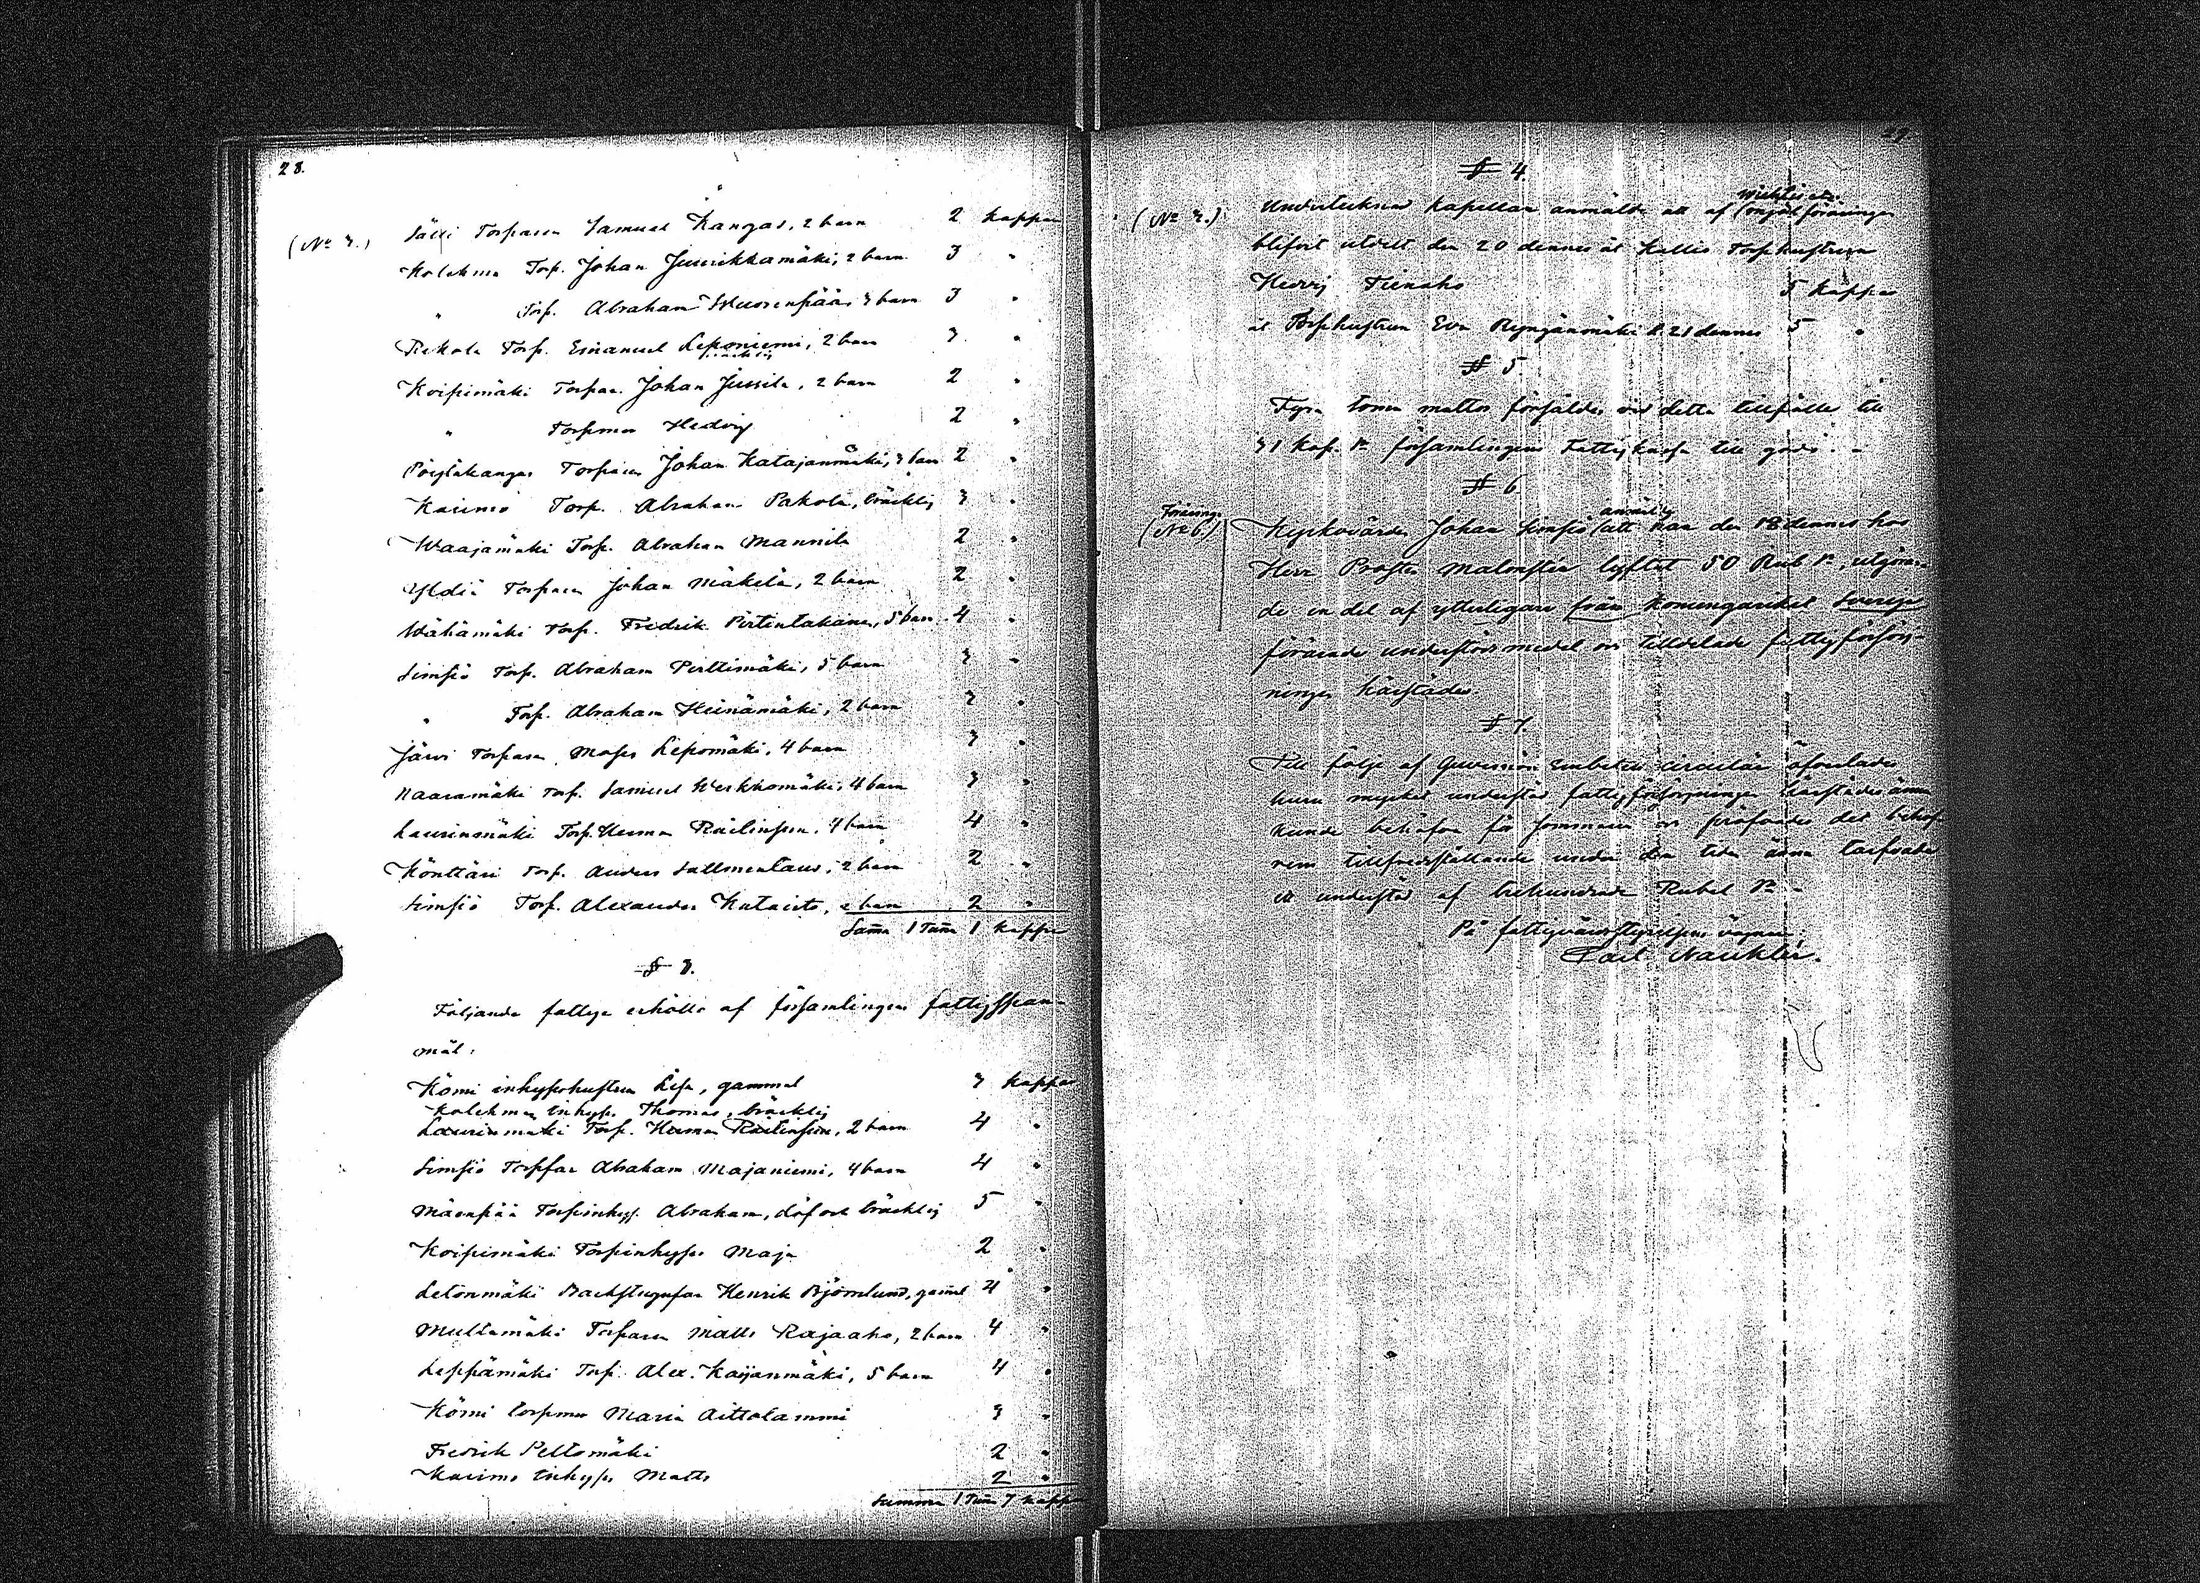 28.
(No 3.) Sälli Torparen Samuel Kangas, 2 barn 2 kappar
Kolehma Torp. Johan Juurikkamäki, 2 barn 3 "
" Torp. Abraham Wuorenpää, 3 barn 3 "
Rekola Torp. Emanuel Leponiemi, 2 barn 3 "
bräcklig
Koipimäki Torpar. Johan Jussila, 2 barn 2 "
" Torpmor Hedvig 2 "
Torparen Johan Katajanmäki, 3 barn 2 "
Kaurio Torp. Abraham Pakola, bräcklig 3 "
Waajamäki Torp. Abraham Mannila 2 "
Torparen Johan Mäkelä, 2 barn 2 "
Wähämäki Torp. Fredrik 5 barn 4 "
Simsiö Torp. Abraham Perttimäki, 5 barn 3 "
" Torp. Abraham Heinämäki, 2 barn 3 "
Järvi Torparen Moses Lepomäki, 4 barn 3 "
Naaramäki Torp. Samuel 4 barn 3 "
Laurinmäki Torp. Herman 4 barn 4 "
Könttäri Torp. Anders 2 barn 2 "
Simsiö Torp. Alexander 2 barn 2 "
Sama 1 Tuna 1 kappe
§ 3.
Följande fattige erhöllo af församlingens fattigspan-
mål:
Kömi inhyseshustrun Lisa, gammal 3 kappar
Kolehma inhyses Thomas, bräcklig
Laurinmäki Torp. Herman 2 barn 4 "
Simsiö Torpar Abraham Majaniemi, 4 barn 4 "
Mäenpää Torpinhys. Abraham, döf och bräcklig 5 "
Koipimäki Torpinhyses Maja 2 "
Letonmäki Backstugufar Henrik Björnlund, gamal 4 "
Multamäki Torparen Matts Rajaaho, 2 barn 4 "
Leppämäki Torp. Alex. Kaijanmäki, 5 barn 4 "
Kömi torpmor Maria Aittolammi 3 "
Fredrik Peltomäki 2 "
inhyses Matts 2 "
Summa 1 Tuna 7 kappar
29.
§ 4.
(No 3.) Undertecknad Kapellan anmälde att af
blifvit utdelt den 20 dennes åt Kallio Torphustrun
Hedvig Tienaho 5 kappar
åt Torphustrun Eva d. 21 dennes 5 "
§ 5
Fyra tomma mattor försåldes vid detta tillfälle till
31 kop. Sr församlingens Fattigkassa till godo. -
§ 6.
Förening
(No 6.) Kyrkovärden Johan Simsiö anmälde att han den 18 dennes hos
Herr Prosten Malmsten lyftat 50 Rub Sr, utgöran-
de en del af ytterligare från Konungariket Sverige
förärade understödsmedel och tilldelade fattigförsörj-
ningen härstädes.
§ 7.
Till följe af Guvernörs Embetets circulär afhandlades
huru mycket understöd fattigförsörjningen härstädes ännu
kunde behöfva för sommaren och pröfvades det behof
vem tillfredsställande under den tiden ännu tarfvade
ett understöd af trehundrade Rubel Sr -
På fattigvårdsstyrelsens vägnar:
Carl Nauklér.